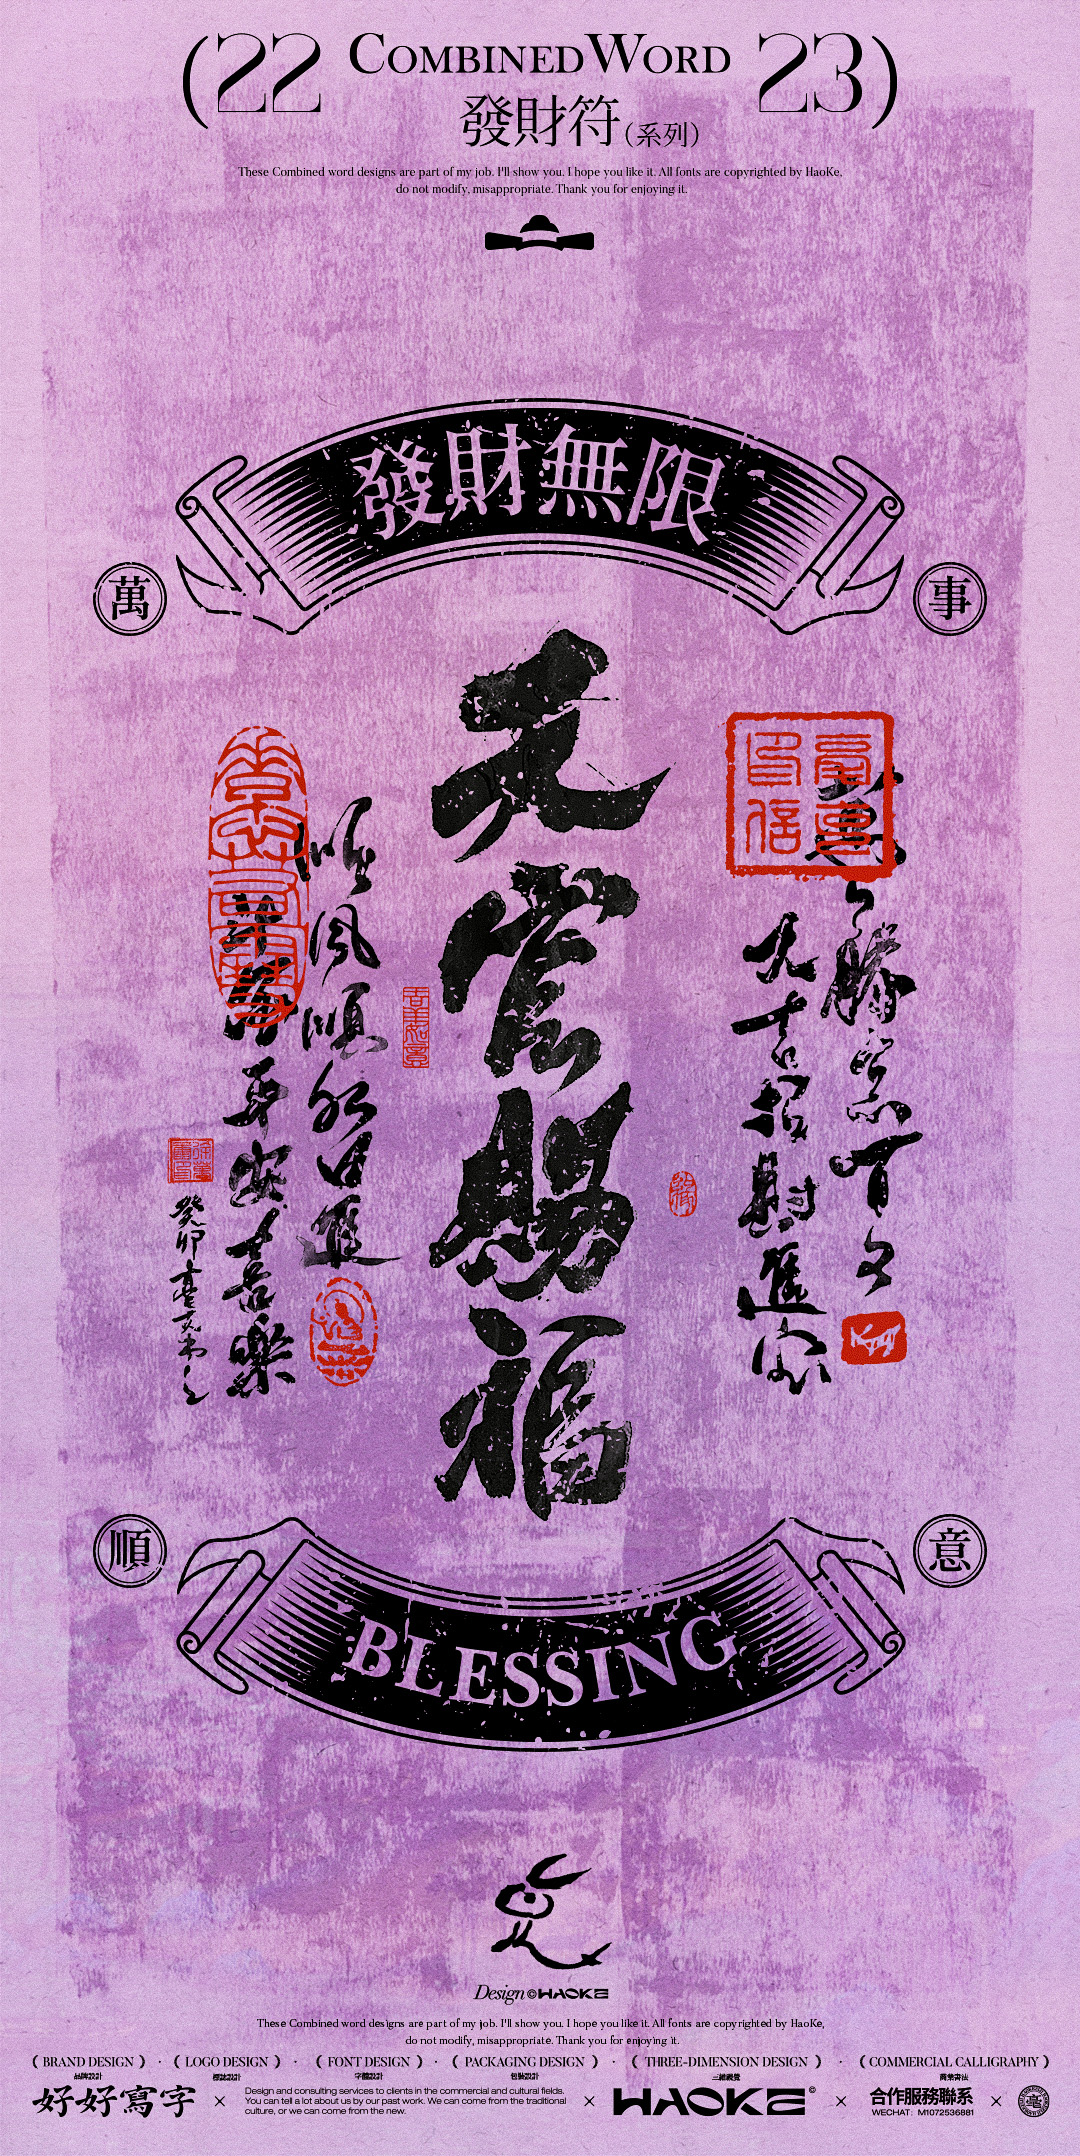 (22 COMBINED WORD 23)
發財符(系列)
These Combined word designs are part of my job. I'll show you. I hope you like it. All fonts are copyrighted by HaoKe,
do not modify, misappropriate. Thank you for enjoying it.
發財無限
萬
事
天官賜福
大吉招財進寶
順風順水日進
平安喜樂
癸卯
順
意
BLESSING
Design ©HAOKE
These Combined word designs are part of my job. I'll show you. I hope you like it. All fonts are copyrighted by HaoKe,
do not modify, misappropriate. Thank you for enjoying it.
( BRAND DESIGN ) · ( LOGO DESIGN ) · ( FONT DESIGN ) · ( PACKAGING DESIGN ) · ( THREE-DIMENSION DESIGN ) · ( COMMERCIAL CALLIGRAPHY )
品牌設計 標誌設計 字體設計 包裝設計 三維視覺 商業書法
好好寫字 × Design and consulting services to clients in the commercial and cultural fields.
You can tell a lot about us by our past work. We can come from the traditional
culture, or we can come from the new.
× HAOKE © × 合作服務聯系
WECHAT: M1072536881 ×